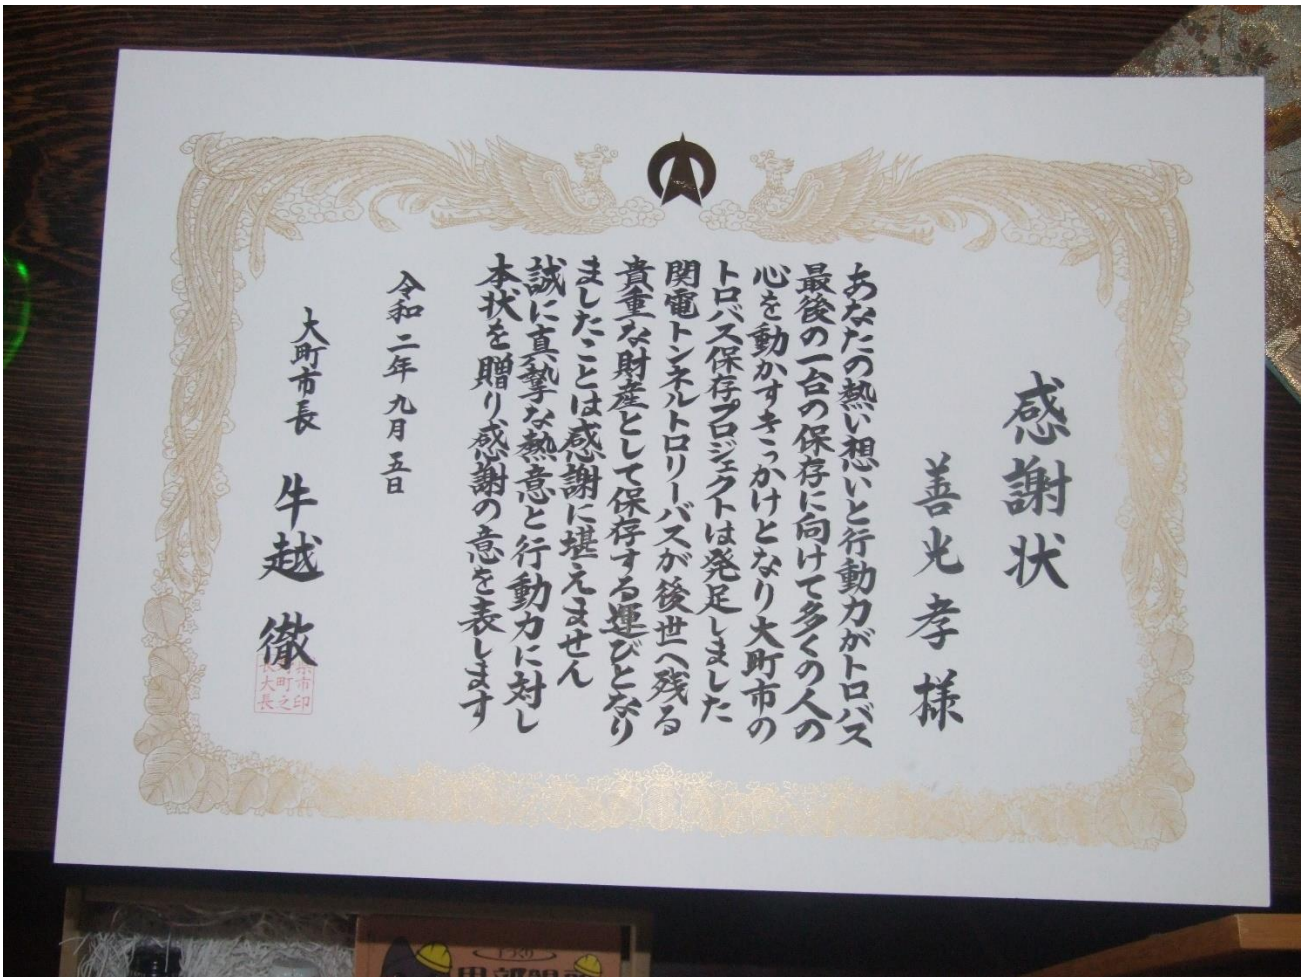 感謝状
善光孝様
あなたの熱い想いと行動力がトロバス
最後の一台の保存に向けて多くの人の
心を動かすきっかけとなり大町市の
トロバス保存プロジェクトは発足しました
関電トンネルトロリーバスが後世へ残る
貴重な財産として保存する運びとなり
ましたことは感謝に堪えません
誠に真摯な熱意と行動力に対し
本状を贈り感謝の意を表します
令和二年九月五日
大町市長 牛越徹